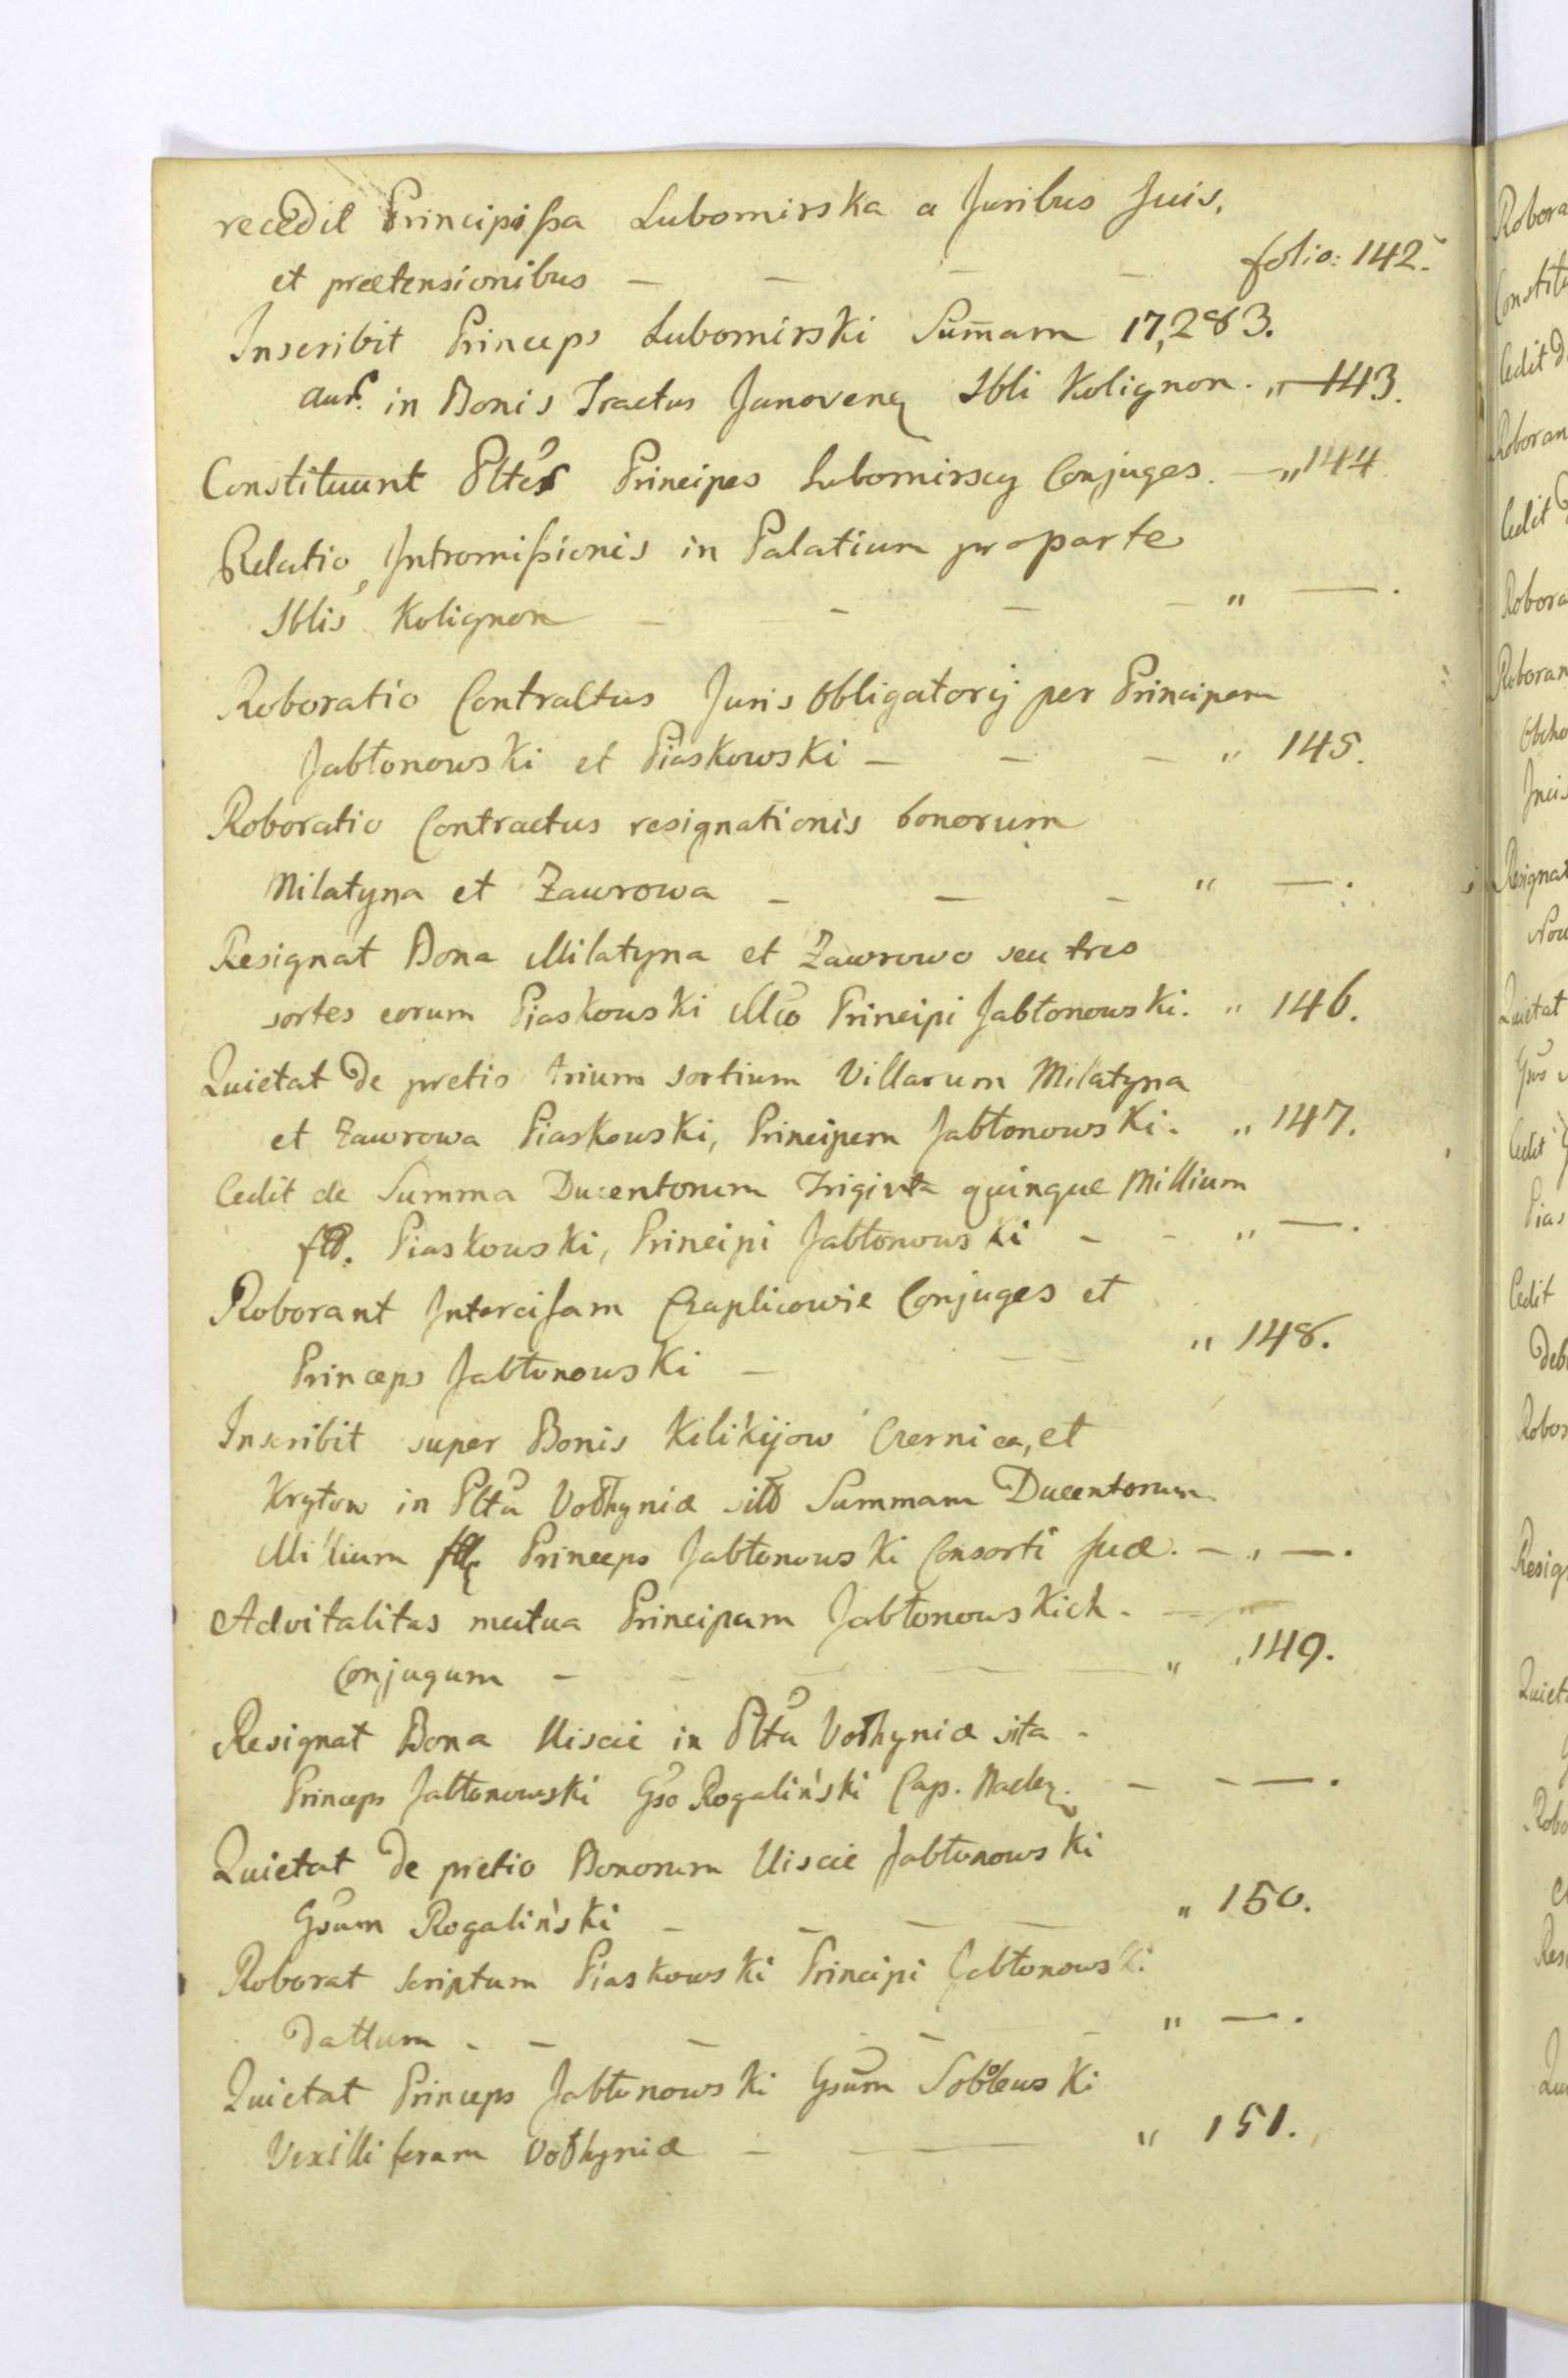 recedit Principissa Lubomirska a Juribus suis,
et prætensionibus — — — — folio: 142.
Inscribit Princeps Lubomirski Sum̄am 17,283.
aur. in Bonis Tractus Janoven Ibli Kolignon. „ — 143.
Constituunt Pltes Principes Lubomirscy Conjuges. — „ 144
Relatio Intromissionis in Palatium pro parte
Iblis Kolignon — — — — „ — .
Roboratio Contractus Juris Obligatorij per Principem
Jabłonowski et Piaskowski — — — „ 145.
Roboratio Contractus resignationis bonorum
Milatyna et Zawrowa — — — „ — .
Resignat Bona Milatyna et Zawrowo seu tres
sortes eorum Piaskowski Illo Principi Jabłonowski. „ 146.
Quietat de pretio trium sortium Villarum Milatyna
et Zawrowa Piaskowski, Principem Jabłonowski. „ 147.
Cedit de Summa Ducentorum Triginta quinque Millium
fl. Piaskowski, Principi Jabłonowski — - „ — .
Roborant Intercisam Czaplicowie Conjuges et
Princeps Jabłonowski — — — „ 148.
Inscribit super Bonis Kilikijow Czernica, et
Kryłow in Pltu Vołhyniæ sit Summam Ducentorum
Millium fl Princeps Jabłonowski Consorti suæ. — „ — .
Advitalitas mutua Principum Jabłonowskich.
Conjugum — — — — „ 149.
Resignat Bona Uiscie in Pltu Vołhyniæ sita -
Princeps Jabłonowski Gso Rogaliński Cap. Nacley. — - — .
Quietat de pretio Bonorum Uiscie Jabłonowski
Gsum Rogaliński — — — — „ 150.
Roborat scriptum Piaskowski Principi Jabłonowski
dattum - — — — — „ — .
Quietat Princeps Jabłonowski Gsum Sobolewski
Vexilliferum Vołhyniæ — — — „ 151.